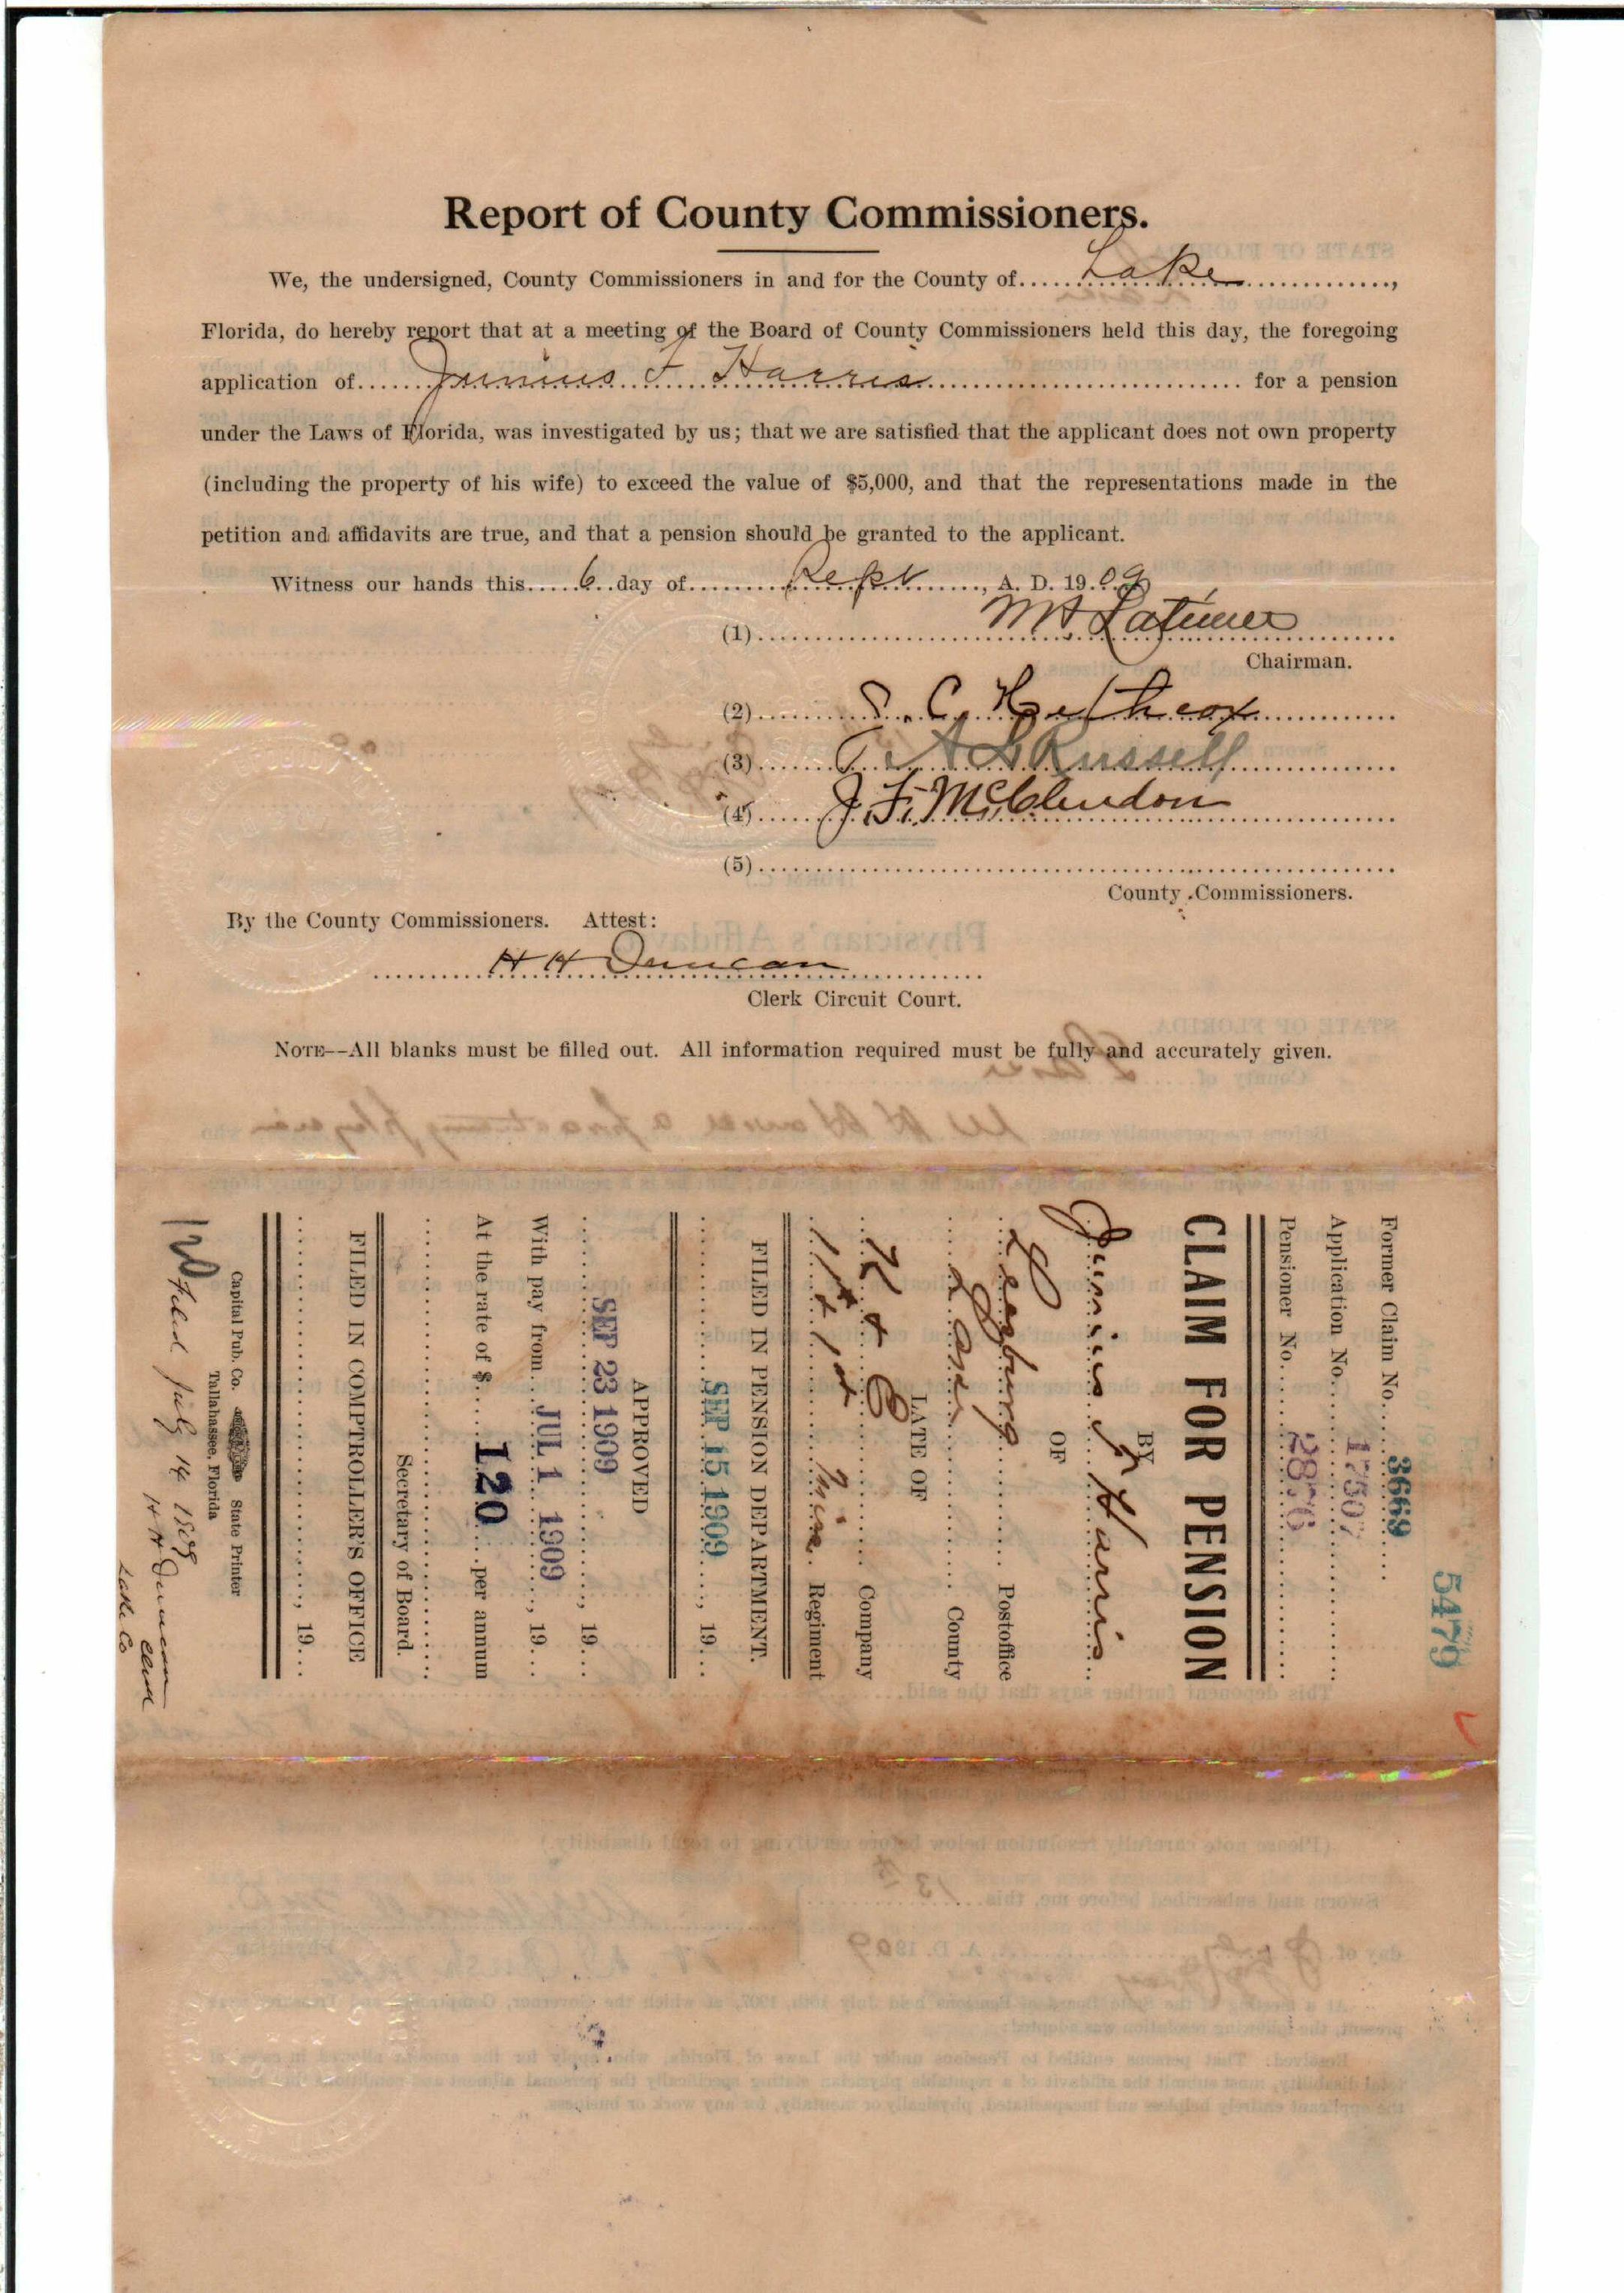 Report of County Commissioners.
We, the undersigned, County Commissioners in and for the County of Lake,
Florida, do hereby report that at a meeting of the Board of County Commissioners held this day, the foregoing
application of Junius F Harris for a pension
under the Laws of Florida, was investigated by us; that we are satisfied that the applicant does not own property
(including the property of his wife) to exceed the value of $5,000, and that the representations made in the
petition and affidavits are true, and that a pension should be granted to the applicant.
Witness our hands this 6 day of Sept, A. D. 1909
(1) M A Latimer
Chairman.
(2) C.
(3) T. A L Russell
(4) J. F. McClendon
(5)
County Commissioners.
By the County Commissioners. Attest:
H H Duncan
Clerk Circuit Court.
NOTE--All blanks must be filled out. All information required must be fully and accurately given.
5479
Former Claim No. 3669
Application No. 17507
Pensioner No.
CLAIM FOR PENSION
BY
Junius F Harris
OF
Leesburg Postoffice
Lake County
LATE OF
K & C Company
1st & 1st Regiment
FILED IN PENSION DEPARTMENT.
SEP 15 1909, 19
APPROVED
SEP 23 1909, 19
With pay from JUL 1 1909, 19
At the rate of $ 120 per annum
Secretary of Board.
FILED IN COMPTROLLER'S OFFICE
, 19
Capital Pub. Co. State Printer
Tallahassee, Florida
120
Filed July 14 1909
H H Duncan
Clerk
Lake Co